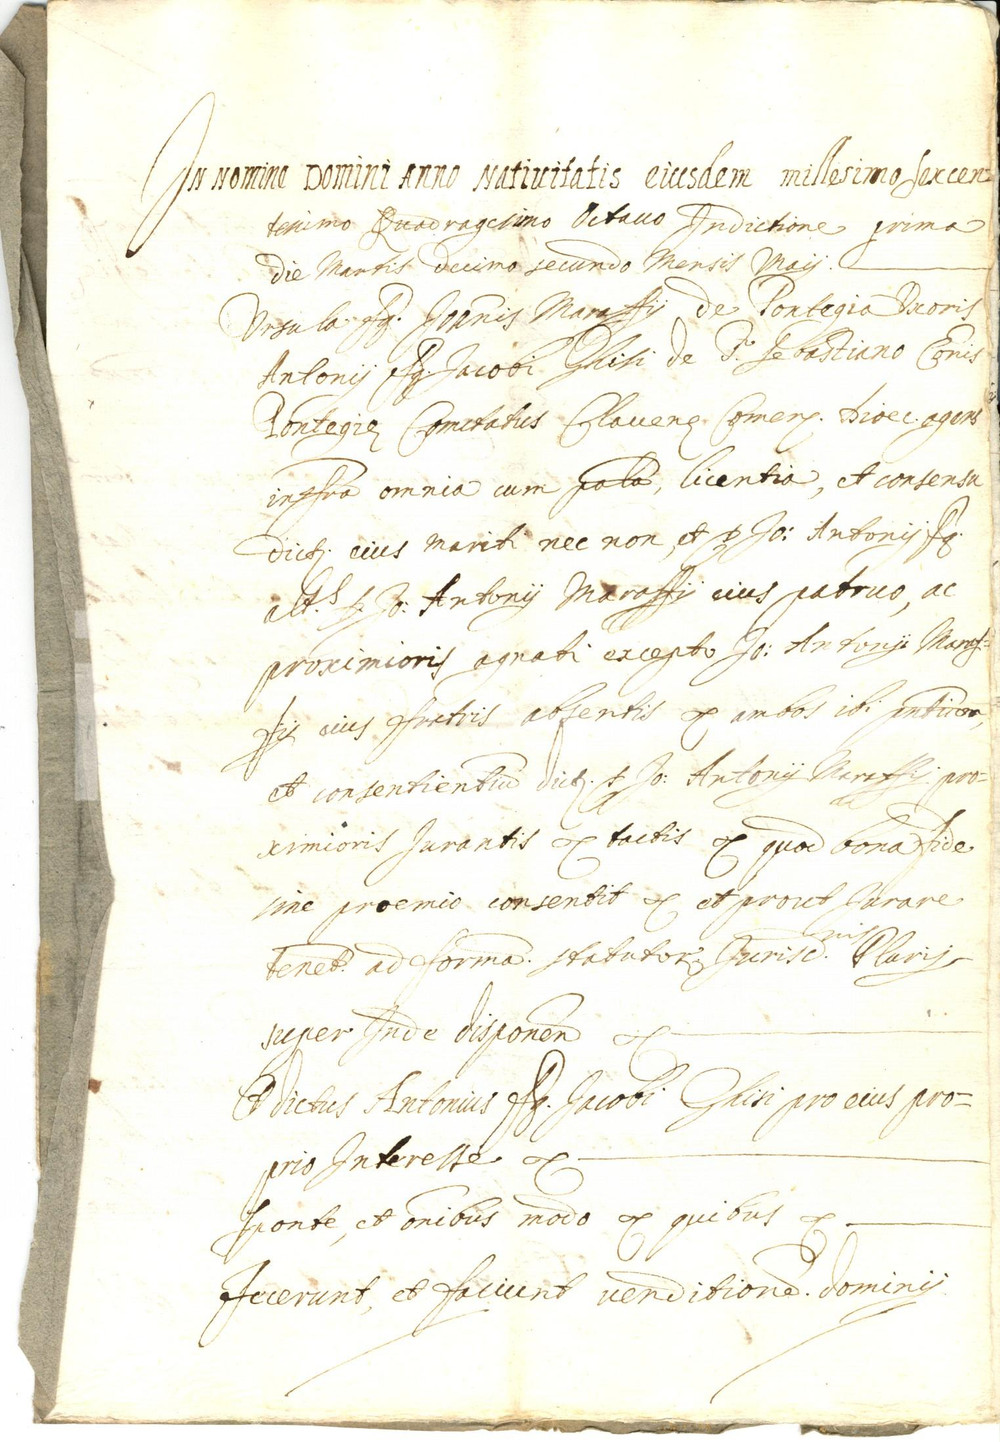 In nomine Domini Anno Nativitatis eiusdem millesimo sexcen-
tesimo Quadragesimo Octavo Indictione prima
die Martis decimo secundo Mensis Maij.
Ursula fq. Joannis Maraffij de Pontegia Uxoris
Antonij fq. Jacobi Ghisi de S. Sebastiano Co͞nis
Pontegię Comitatus Clavenę Comen. dioec. agens
infra omnia cum licentia, et consensu
dicti eius mariti nec non, et Jo: Antonij fq.
alt.s Jo: Antonij Maraffij eius patruo, ac
proximioris agnati excepto Jo: Antonij Maraf-
fij eius fratris absentis & ambos ibi
et consentientiu dict. Jo: Antonij Maraffij pro-
ximioris Jurantis & tactis & quod bona fide
sine proemio consentit & et prout Jurare
tenet. ad forma. statutor. Jurisd.nis Plurij
super Inde disponen &
Et dictus Antonius fq. Jacobi Ghisi pro eius pro-
prio Interesse &
sponte, et o͞nibus modo & quibus &
Fecerunt, et faciunt venditione. dominij